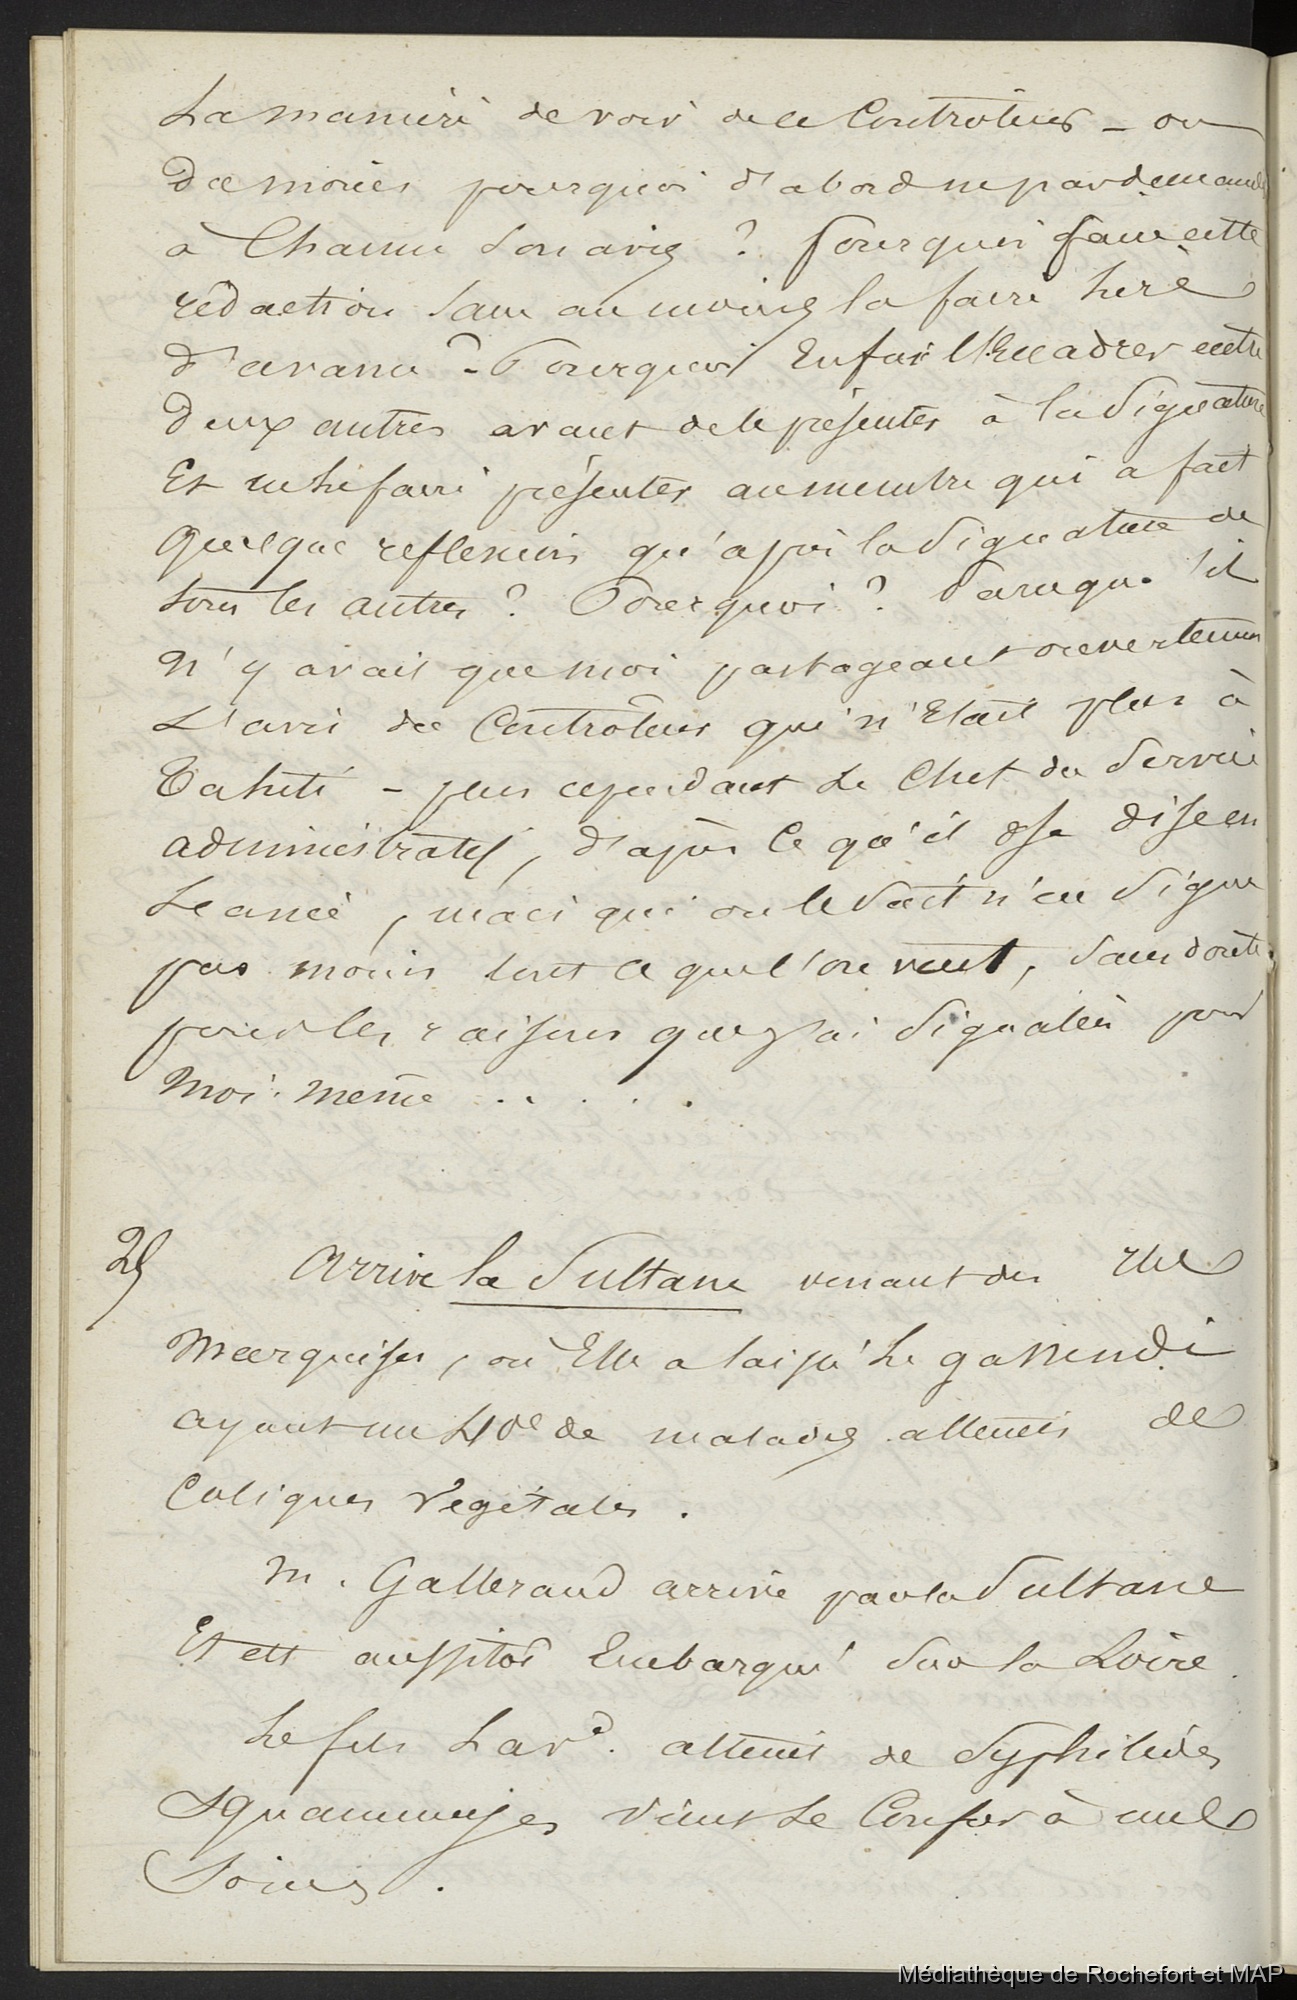 La manière de voir du Contrôleur – ou
Du moins pourquoi d'abord ne pas demander
à Chacun Son avis ? Pourquoi faire cette
rédaction Sans au moins la faire lire
d'avance ? – Pourquoi Enfin l'Encadrer entre
Deux autres avant de le présenter à la Signature
Et ne le faire présenter au membre qui a fait
quelque reflexions qu'après la Signature de
tous les autres ? Pourquoi ? Parceque s'il
n'y avait que moi partageant ouvertement
L'avis du Contrôleur qui n'Etait plus à
Tahiti – plus cependant Le Chef du Service
administratif, d'après Ce qu'il ose dise en
Séance, mais qui on le Sait n'en Signe
pas moins tout ce que l'on veut, Sans doute
pour les raisons que j'ai Signalées pour
Moi-même . . . . .
29
Arrive la Sultane venant des Iles
Marquises, où Elle a laissé Le gassendi
ayant un 40e de malades atteints de
Coliques Végétales.
M. Gallerand arrive par la Sultane
Et est aussitôt Embarqué Sur la Loire.
Le fils Lavd. atteint de Syphilides
Squammeuses vient Se Confier à mes
Soins.
Médiathèque de Rochefort et MAP